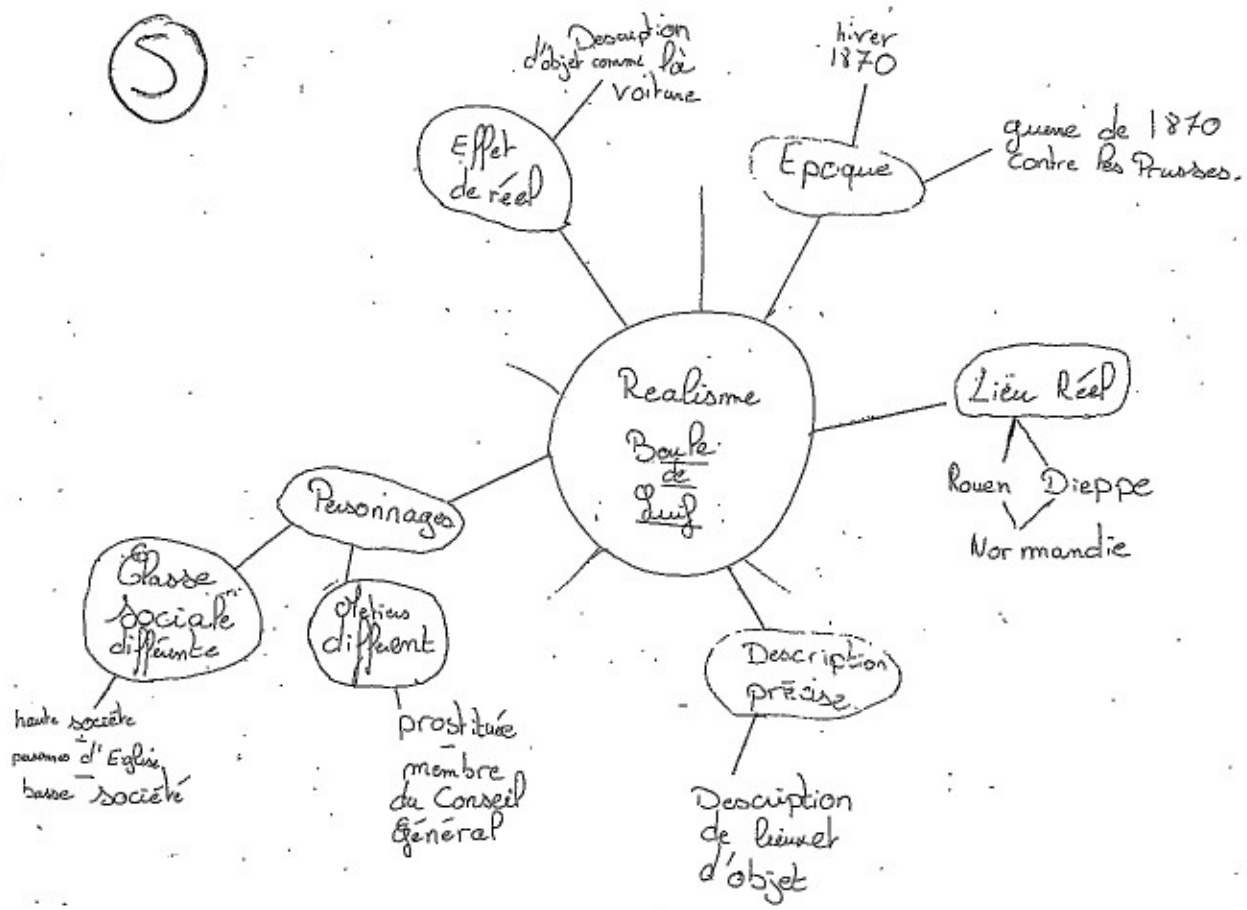 S
Description
d'objet comme là
voiture
Effet
de réel
hiver
1870
Epoque
guerre de 1870
contre les Prusses.
Realisme
Boule
de
Suif
Lieu Réel
Rouen Dieppe
Normandie
Personnages
Classe
sociale
différente
haute société
d'Eglise
basse société
Metiers
différent
prostituée
membre
du Conseil
Général
Description
précise
Description
de lieux et
d'objet